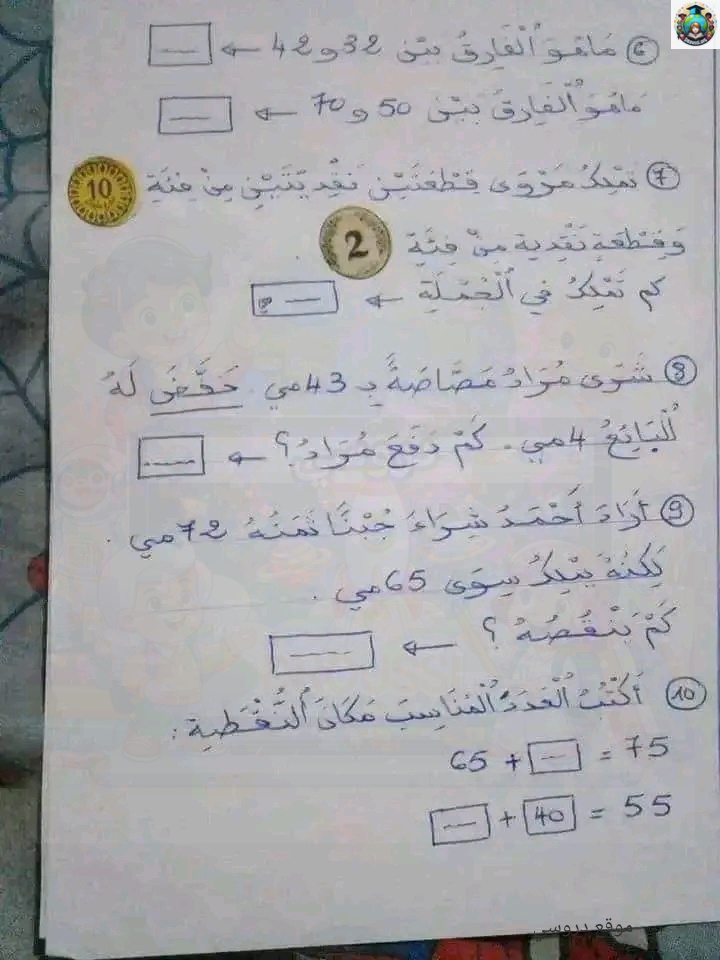 ⑥ مَا هُوَ اُلْفَارِقُ بَيْنَ 32 و 42 ← ....
مَا هُوَ اُلْفَارِقُ بَيْنَ 50 و 70 ← ....
⑦ تَمْلِكُ مَرْوَى قِطْعَتَيْنِ نَقْدِيَّتَيْنِ مِنْ فِئَةِ 10
وَقِطْعَةٍ نَقْدِيةٍ مِنْ فِئَةِ 2 .
كم تَمْلِكُ فِي اُلْجُمْلَةِ ← .... ؟
⑧ شَرَى مُرَادُ مَصَّاصَةً بِـ 43 مي. خَفَّضَ لَهُ
اُلْبَائِعُ 4 مي. كَمْ دَفَعَ مُرَادُ؟ ← ....
⑨ أَرَادَ أَحْمَدُ شِرَاءَ جُبْنًا ثَمَنُهُ 72 مي.
لَكِنَّهُ يَمْلِكُ سِوَى 65 مي.
كَمْ يَنْقُصُهُ؟ ← ....
⑩ أَكْتُبُ اُلْعَدَدَ اُلْمُنَاسِبَ مَكَانَ اُلنُّقْطَةِ :
65 + .... = 75
.... + 40 = 55